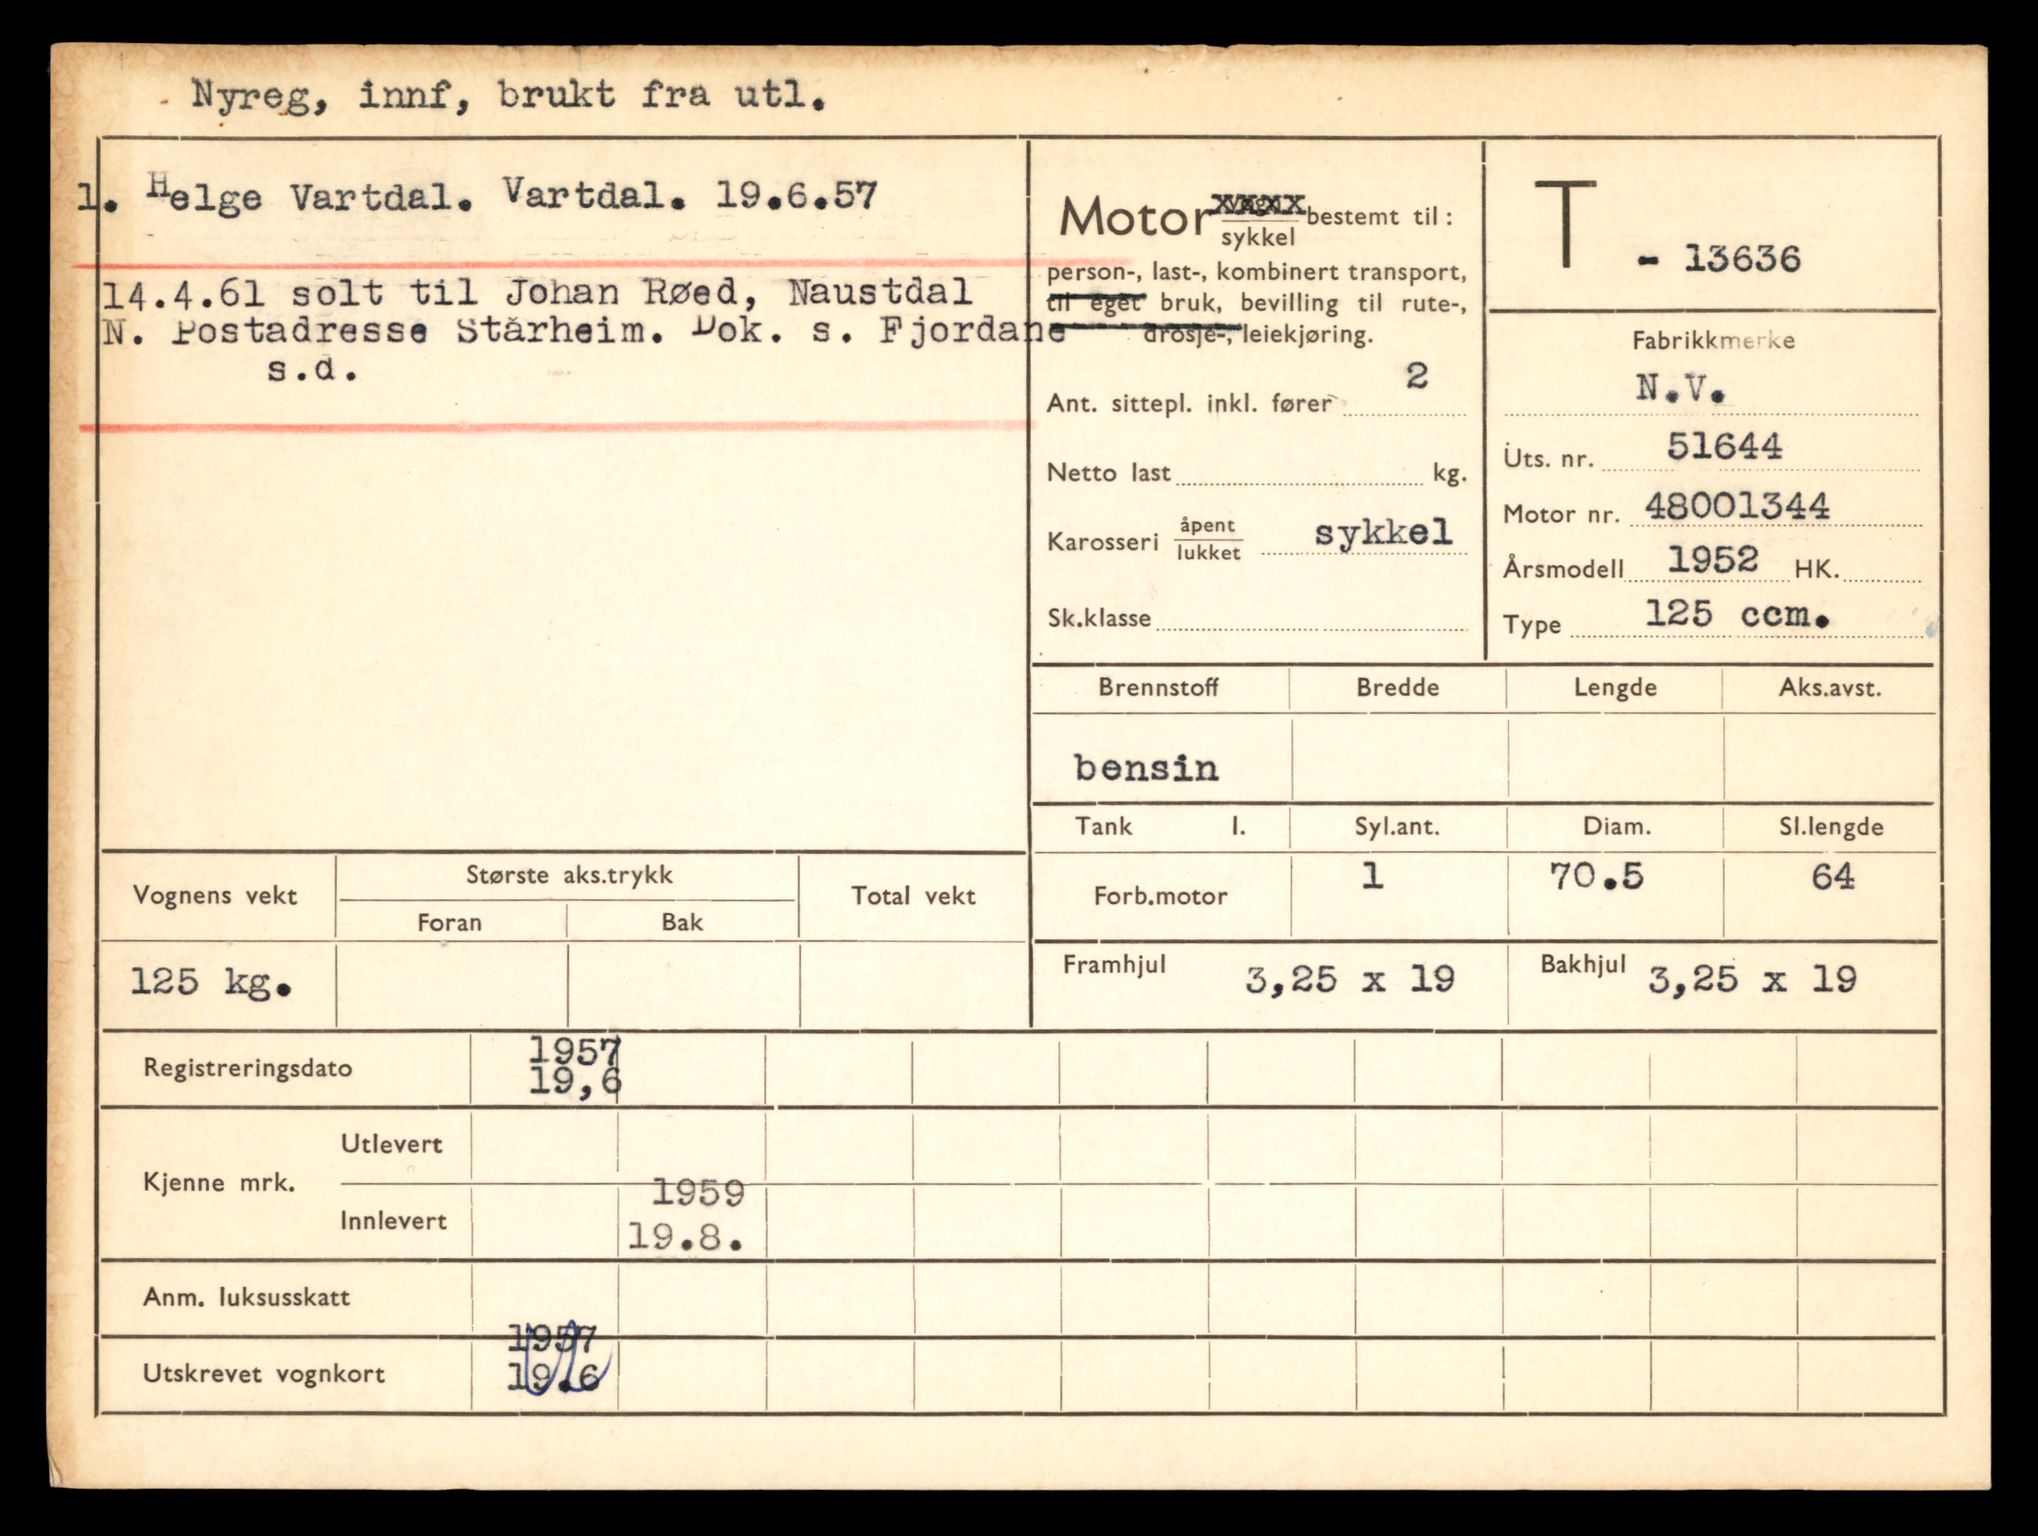 Nyreg, innf, brukt fra utl.
1. Helge Vartdal. Vartdal. 19.6.57
14.4.61 solt til Johan Røed, Naustdal
N. Postadresse Stårheim. Dok. s. Fjordane
s.d.
Motor sykkel bestemt til:
person-, last-, kombinert transport,
til eget bruk, bevilling til rute-,
drosje-, leiekjøring.
Ant. sittepl. inkl. fører 2
Netto last kg.
Karosseri åpent lukket sykkel
Sk.klasse
T - 13636
Fabrikkmerke
N.V.
Uts. nr. 51644
Motor nr. 48001344
Årsmodell 1952 HK.
Type 125 ccm.
Brennstoff Bredde Lengde Aks.avst.
bensin
Tank l. Syl.ant. Diam. Sl.lengde
Forb.motor 1 70.5 64
Framhjul 3,25 x 19 Bakhjul 3,25 x 19
Vognens vekt Største aks.trykk Total vekt
Foran Bak
125 kg.
Registreringsdato 1957
19,6
Kjenne mrk. Utlevert
Innlevert 1959
19.8.
Anm. luksusskatt
Utskrevet vognkort 1957
19.6